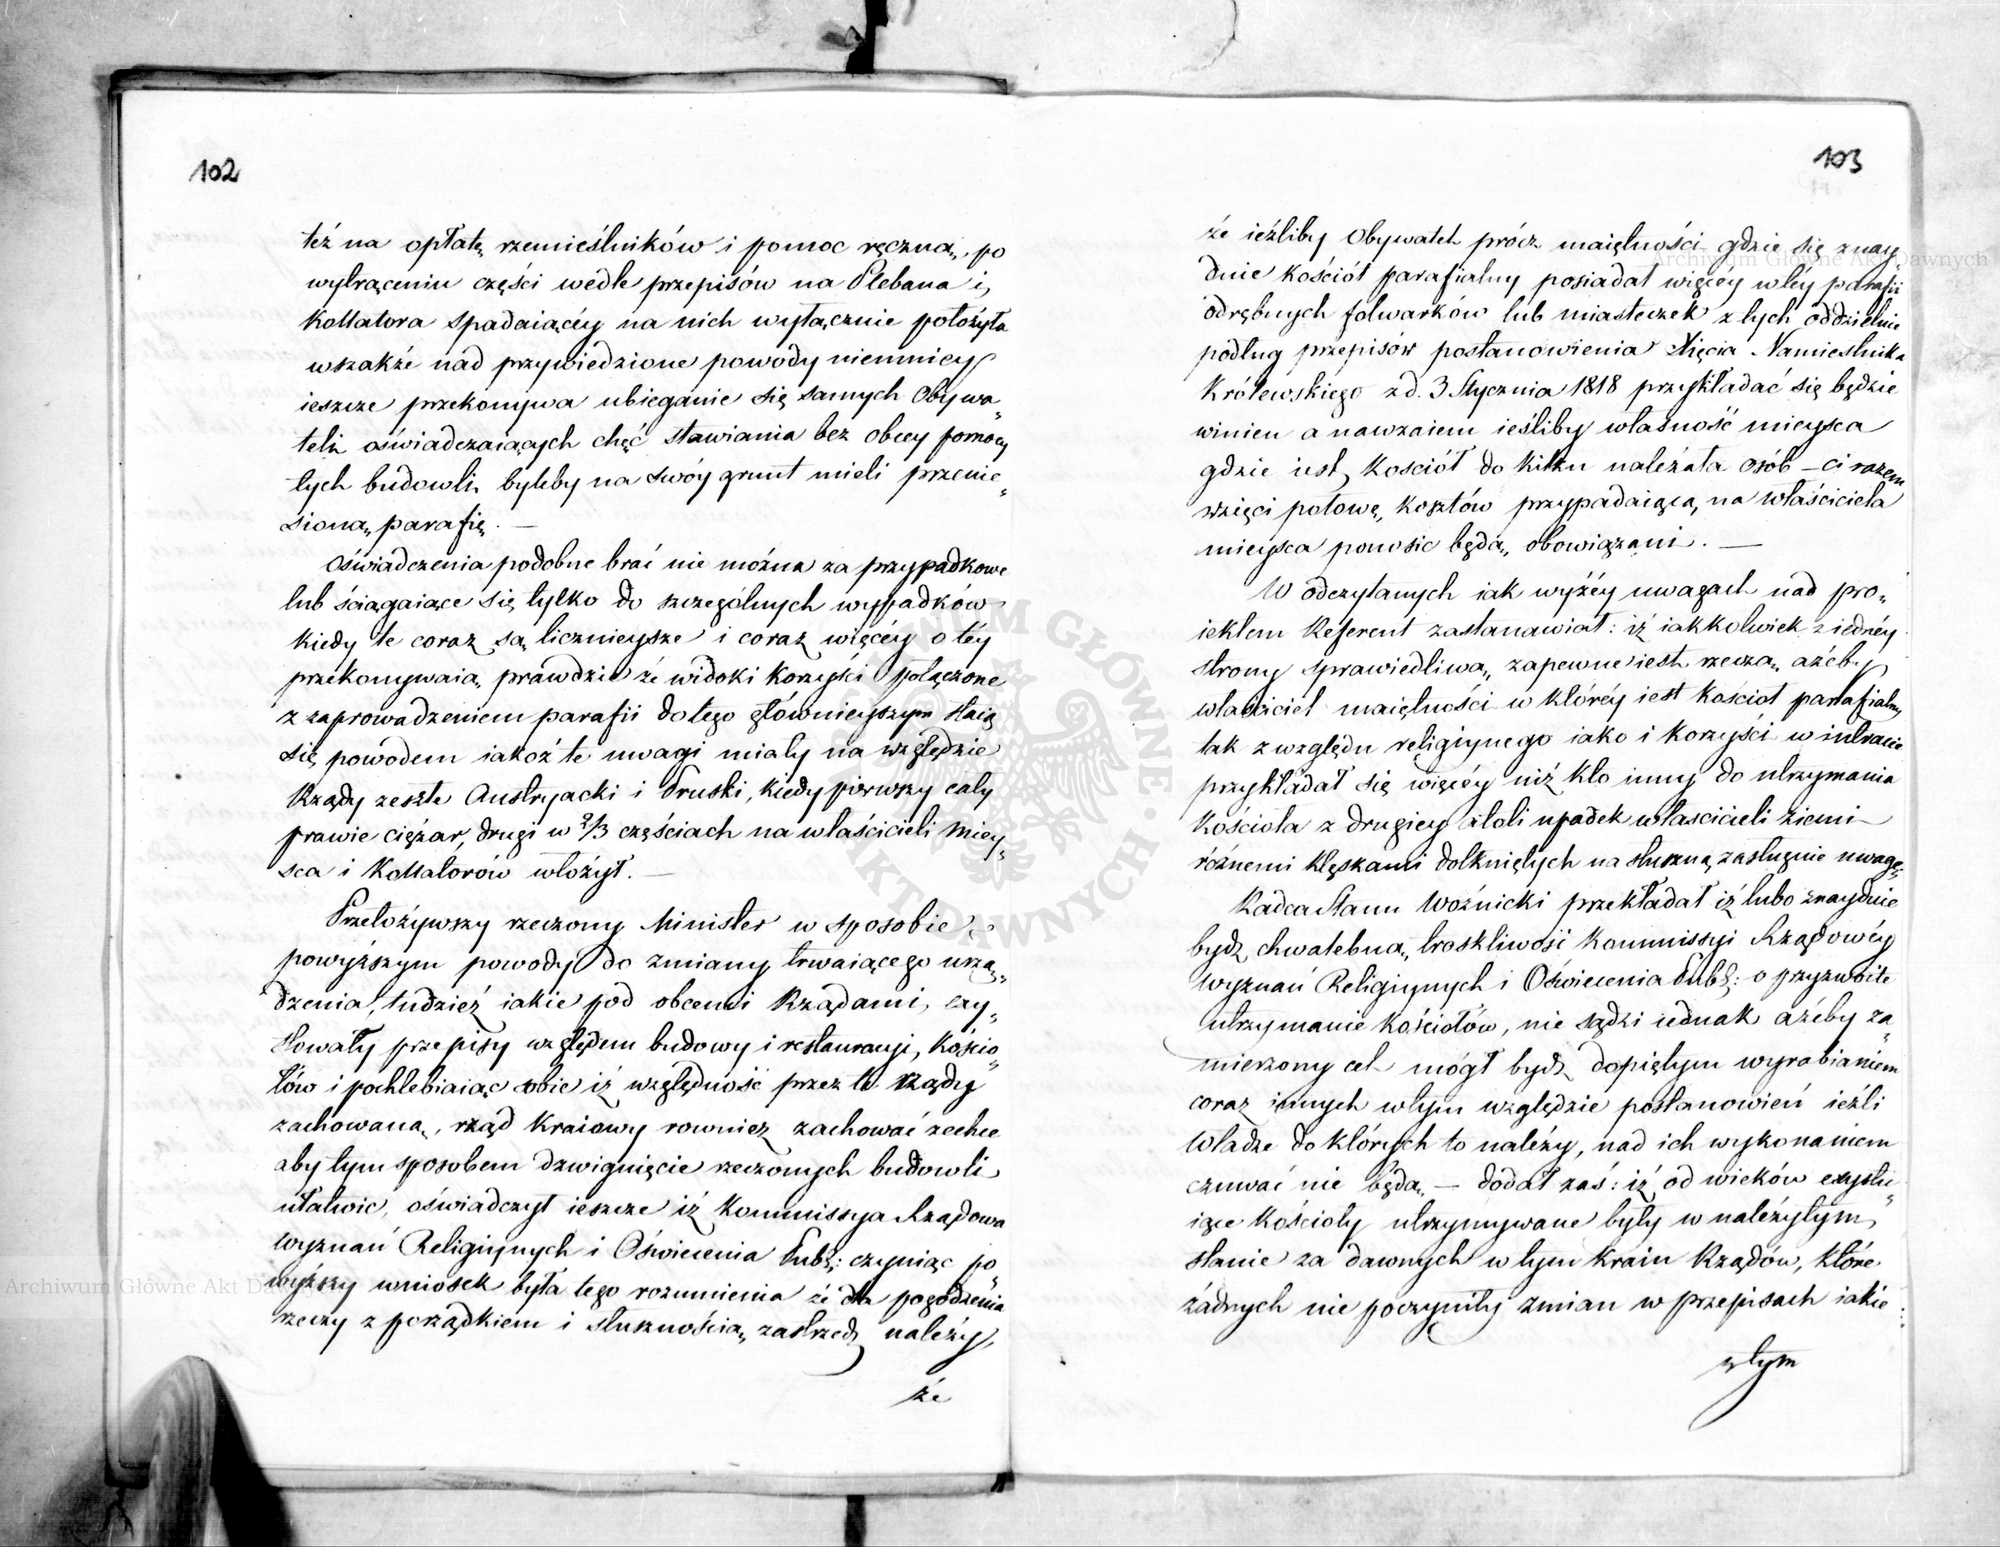 102
też na opłatę rzemieślników i pomoc ręczną, po
wytrąceniu części wedle przepisów na Plebana i
Kollatora spadaiącéy na nich wyłącznie położyła
wszakże nad przywiedzione powody niemniey
ieszcze przekonywa ubieganie się samych Obywa„
teli oświadczaiących chęć stawiania bez obcey pomocy
tych budowli, byleby na swóy grunt mieli przenie„
sioną parafię. —
Oświadczenia podobne brać nie można za przypadkowe
lub ściągaiące się tylko do szczególnych wypadków
kiedy te coraz są licznieysze i coraz więcéy o téy
przekonywaią prawdzie że widoki korzyści połączone
z zaprowadzeniem parafii do tego głównieyszym staią
się powodem iakoż te uwagi miały na względzie
Rządy zeszłe Austryacki i Pruski, kiedy pierwszy cały
prawie ciężar, drugi w 2/3 częściach na właścicieli miey„
sca i Kollatorów włożył. —
Przełożywszy rzeczony Minister w sposobie
powyższym powody do zmiany trwaiącego urzą„
dzenia, tudzież iakie pod obcemi Rządami exy„
stowały przepisy względem budowy i restauracyi, kościo„
łów i pochlebiaiąc sobie iż względność przez te Rządy
zachowaną, rząd kraiowy rownież zachować zechce
aby tym sposobem dzwignięcie rzeczonych budowli
ułatwić, oświadczył ieszcze iż Kommissya Rządowa
Wyznań Religiynych i Oświecenia Publ: czyniąc po„
wyższy wniosek była tego rozumienia że dla pogodzenia
rzeczy z porządkiem i słusznością zastrzedz należy,
że
103
że ieżliby Obywatel prócz maiętności gdzie się znay„
duie kościół parafialny posiadał więcéy w téy parafii
odrębnych folwarków lub miasteczek z tych oddzielnie
podług przepisów postanowienia Xięcia Namiestnika
Królewskiego z d. 3 Stycznia 1818 przykładać się będzie
winien a nawzaiem ieśliby własność mieysca
gdzie iest kościół do kilku należała osób — ci razem
wzięci połowę kosztów przypadaiącą na właściciela
mieysca ponosic będą obowiązani. —
W odczytanych iak wyżéy uwagach nad pro„
iektem Referent zastanawiał: iż iakkolwiek z iednéy
strony sprawiedliwą zapewne iest rzeczą ażeby
właściciel maiętności w któréy iest kościoł parafialny
tak z względu religiynego iako i korzyści w intracie
przykładał się więcéy niż kto inny do utrzymania
kościoła z drugiey atoli upadek właścicieli ziemi
róźnemi klęskami dotkniętych na słuszną zasługuie uwagę.
Radca Stanu Woźnicki przekładał iż lubo znayduie
bydź chwalebną troskliwość Kommissyi Rządowéy
Wyznań Religiynych i Oświecenia Publ: o przyzwoite
utrzymanie kościołów, nie sądzi iednak ażeby za„
mierzony cel mógł bydź dopiętym wyrabianiem
coraz innych w tym względzie postanowień ieźli
Władze do których to należy, nad ich wykonaniem
czuwać nie będą — dodał zaś: iż od wieków exystu„
iące kościoły utrzymywane były w należytym
stanie za dawnych w tym kraiu Rządów, które
żadnych nie poczyniły zmian w przepisach iakie
w tym